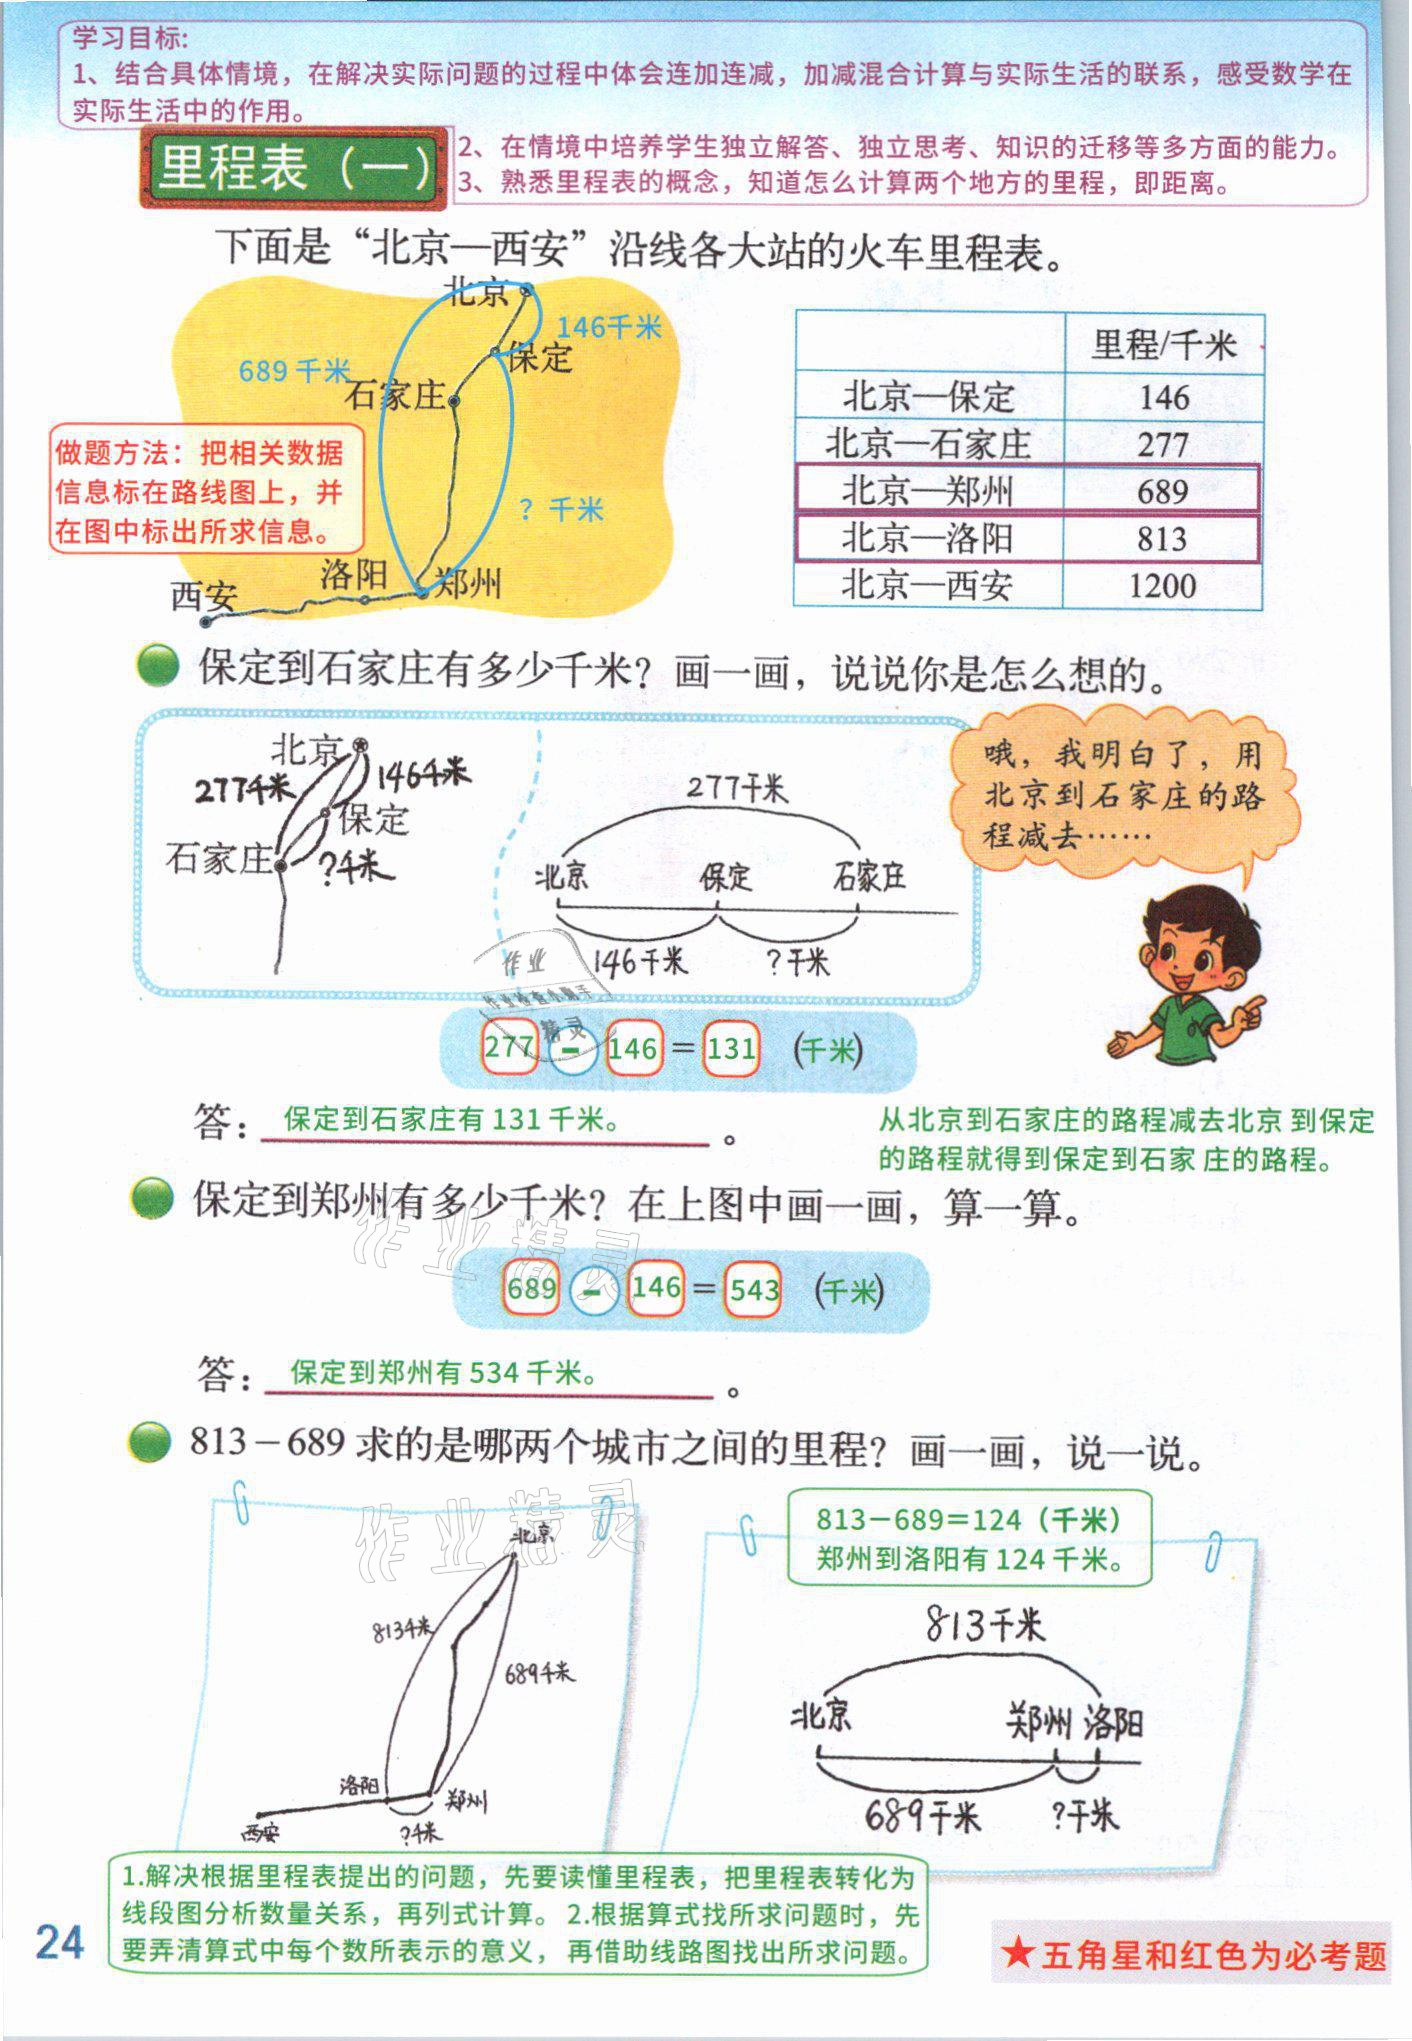 学习目标:
1、结合具体情境，在解决实际问题的过程中体会连加连减，加减混合计算与实际生活的联系，感受数学在
实际生活中的作用。
2、在情境中培养学生独立解答、独立思考、知识的迁移等多方面的能力。
里程表（一）
3、熟悉里程表的概念，知道怎么计算两个地方的里程，即距离。
下面是“北京—西安”沿线各大站的火车里程表。
北京
146千米
保定
689千米
石家庄
做题方法：把相关数据
信息标在路线图上，并
在图中标出所求信息。
？千米
洛阳
郑州
西安
里程/千米
北京—保定 146
北京—石家庄 277
北京—郑州 689
北京—洛阳 813
北京—西安 1200
保定到石家庄有多少千米？画一画，说说你是怎么想的。
北京
277千米
146千米
保定
石家庄
?千米
277千米
北京 保定 石家庄
146千米 ?千米
哦，我明白了，用
北京到石家庄的路
程减去……
作业
作业检查小助手
精灵
277 - 146 = 131 (千米)
答：保定到石家庄有131千米。。
从北京到石家庄的路程减去北京 到保定
的路程就得到保定到石家 庄的路程。
保定到郑州有多少千米？在上图中画一画，算一算。
作业精灵
689 - 146 = 543 (千米)
答：保定到郑州有534千米。。
813－689求的是哪两个城市之间的里程？画一画，说一说。
作业精灵
北京
813千米
689千米
洛阳
郑州
西安
?千米
813－689＝124（千米）
郑州到洛阳有124千米。
813千米
北京 郑州 洛阳
689千米 ?千米
1.解决根据里程表提出的问题，先要读懂里程表，把里程表转化为
线段图分析数量关系，再列式计算。 2.根据算式找所求问题时，先
要弄清算式中每个数所表示的意义， 再借助线路图找出所求问题。
24
★五角星和红色为必考题